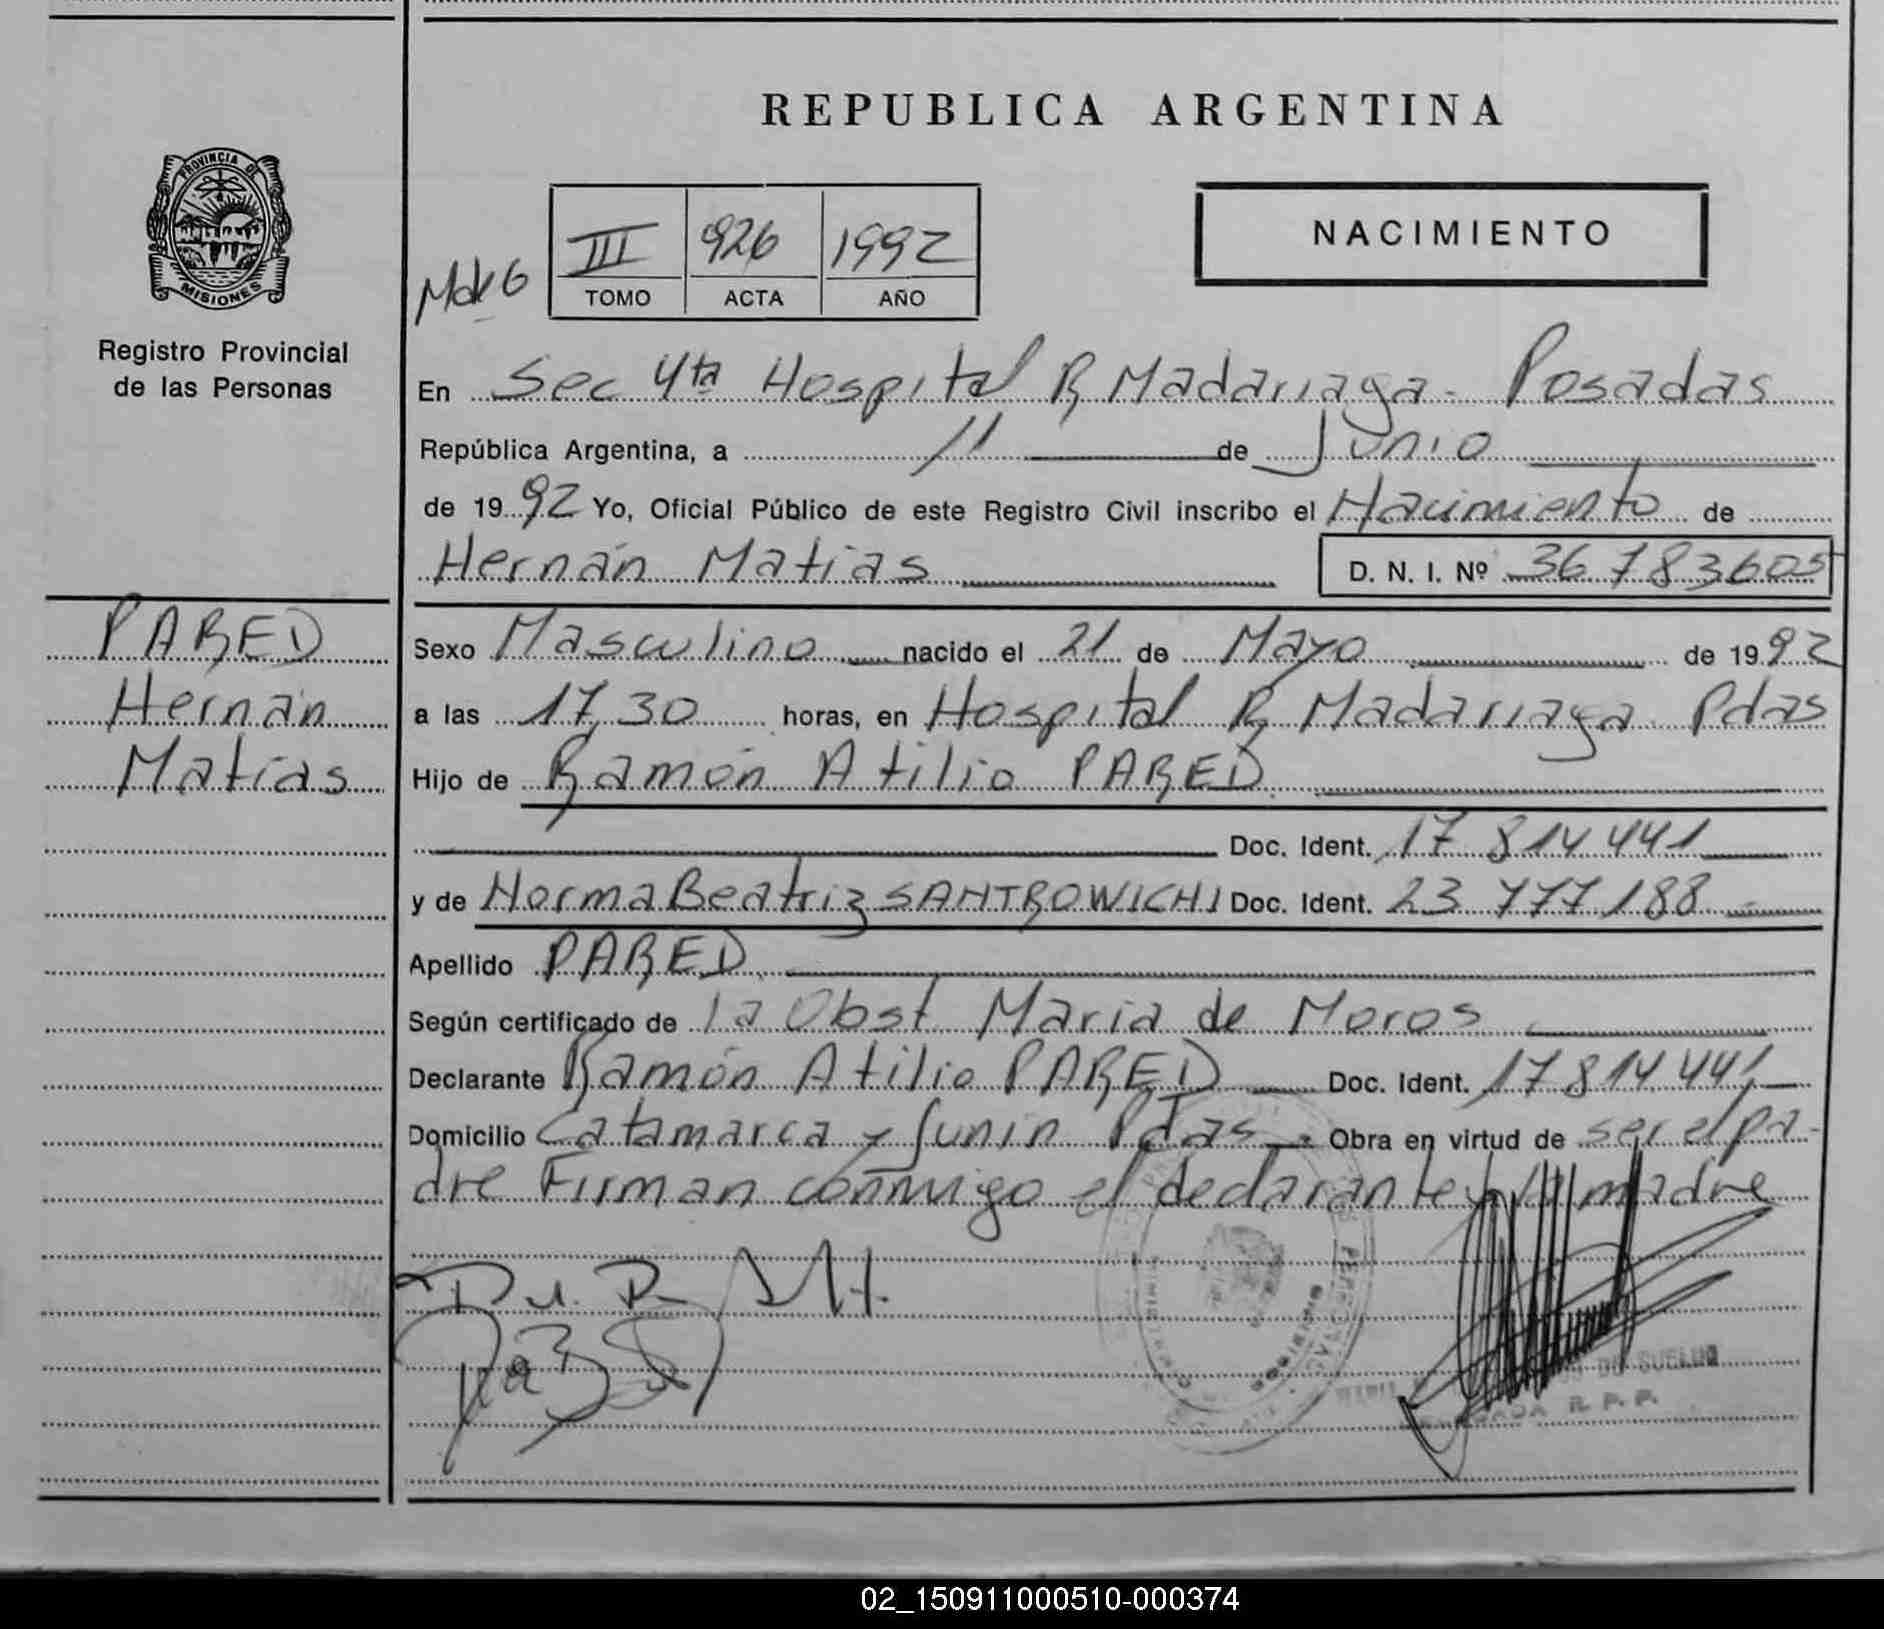 REPUBLICA ARGENTINA
PROVINCIA DE
MISIONES
Registro Provincial
de las Personas
III 926 1992
TOMO ACTA AÑO
NACIMIENTO
En Sec 4ta Hospital R Madariaga - Posadas
República Argentina, a 11 de Junio
de 1992 Yo, Oficial Público de este Registro Civil inscribo el Nacimiento de
Hernán Matías D. N. I. Nº 36 783605
PARED
Hernán
Matías
Sexo Masculino nacido el 21 de Mayo de 1992
a las 17,30 horas, en Hospital R Madariaga Pdas
Hijo de Ramón Atilio PARED
Doc. Ident. 17 814 441
y de Norma Beatriz SANTROWICHI Doc. Ident. 23 777 188
Apellido PARED
Según certificado de la Obst María de Moros
Declarante Ramón Atilio PARED Doc. Ident. 17 814 441
Domicilio Catamarca y Junin Pdas Obra en virtud de ser el pa-
dre Firman conmigo el declarante y la madre
R. P. P.
02_150911000510-000374